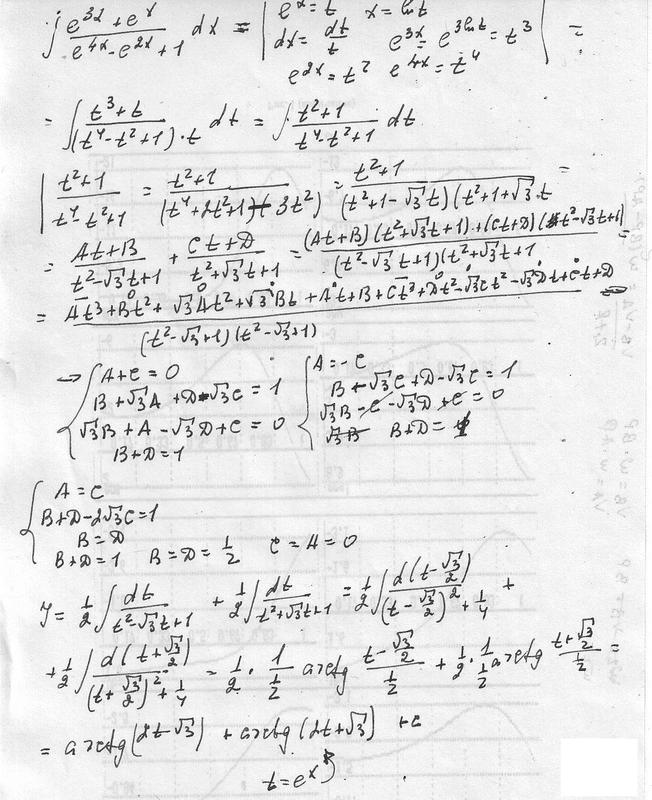 ∫ (e^{3x} + e^x)/(e^{4x} - e^{2x} + 1) dx = | e^x = t   x = ln t
dx = dt/t   e^{3x} = e^{3lnt} = t^3 | =
e^{2x} = t^2   e^{4x} = t^4
= ∫ (t^3 + t)/((t^4 - t^2 + 1) · t) dt = ∫ (t^2 + 1)/(t^4 - t^2 + 1) dt
| (t^2 + 1)/(t^4 - t^2 + 1) = (t^2 + 1)/((t^4 + 2t^2 + 1) - 3t^2) = (t^2 + 1)/((t^2 + 1 - √3 t)(t^2 + 1 + √3 t) =
= (At + B)/(t^2 - √3 t + 1) + (Ct + D)/(t^2 + √3 t + 1) = ((At + B)(t^2 + √3 t + 1) + (Ct + D)(t^2 - √3 t + 1))/((t^2 - √3 t + 1)(t^2 + √3 t + 1) =
= (At^3 + Bt^2 + √3 At^2 + √3 Bt + At + B + Ct^3 + Dt^2 - √3 Ct^2 - √3 Dt + Ct + D)/((t^2 - √3 + 1)(t^2 - √3 + 1)) ⇒
→ { A + C = 0   { A = -C
B + √3 A + D - √3 C = 1   B - √3 C + D - √3 C = 1
√3 B + A - √3 D + C = 0   √3 B - C - √3 D + C = 0
B + D = 1   B + D = 1
{ A = C
B + D - 2√3 C = 1
B = D
B + D = 1   B = D = 1/2   C = A = 0
J = 1/2 ∫ dt/(t^2 - √3 t + 1) + 1/2 ∫ dt/(t^2 + √3 t + 1) = 1/2 ∫ d(t - √3/2)/((t - √3/2)^2 + 1/4) +
+ 1/2 ∫ d(t + √3/2)/((t + √3/2)^2 + 1/4) = 1/2 · 1/(1/2) arctg (t - √3/2)/(1/2) + 1/2 · 1/(1/2) arctg (t + √3/2)/(1/2) =
= arctg(2t - √3) + arctg(2t + √3) + c
t = e^x